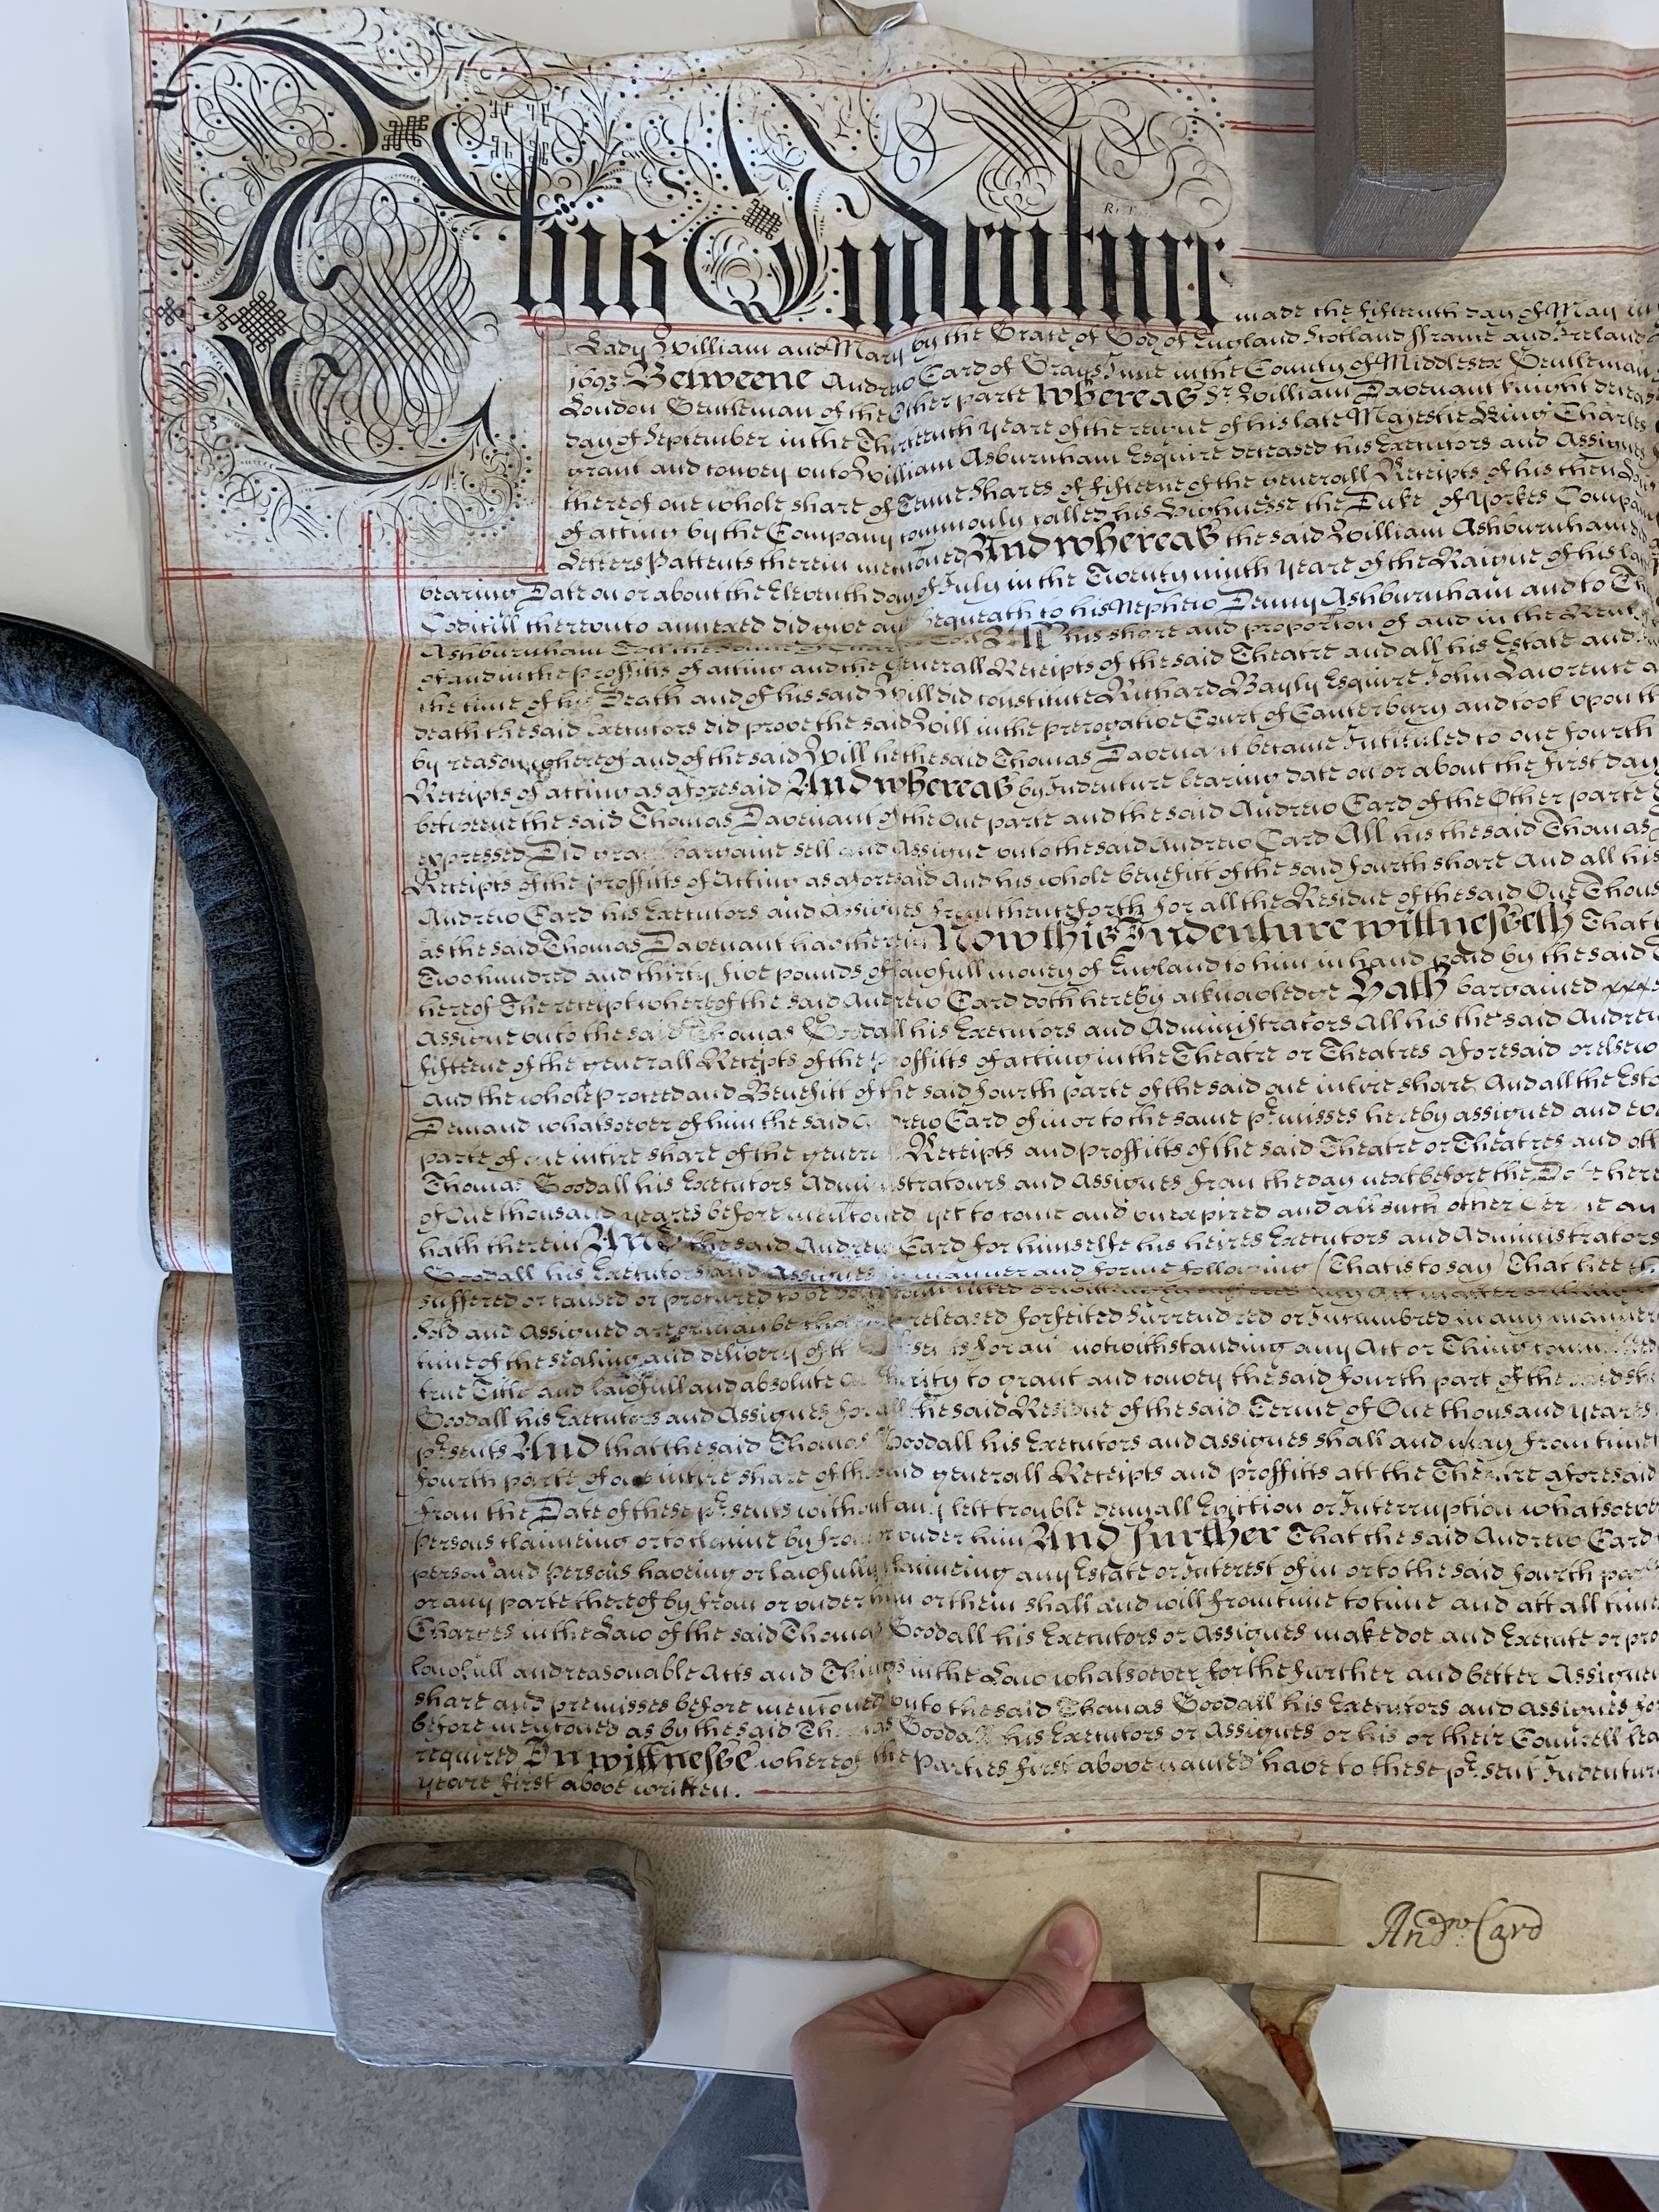 This Indenture
made the fifteenth day of May in
Lady William and Mary by the Grace of God of England Scotland ffrance and Ireland
1693 Betweene Andrew Card of Grays Inne in the County of Middlesex Gentleman
London Gentleman of the Other parte Whereas Sr. William Davenant knight deceased
day of September in the Thirteenth yeare of the reigne of his late Majestie King Charles
grant and convey unto William Asburnham Esquire deceased his Executors and Assignes
thereof one whole share of Tenne Shares of fifteene of the generall Receipts of his then
of acting by the Company commonly called his Highnesse the Duke of Yorkes Company
Letters Pattents therein mencioned And whereas the said William Ashburnham
bearing Date on or about the Eleventh day of July in the Twenty ninth yeare of the Raigne of his
Codicill thereunto annexed did give and bequeath to his Nephew Denny Ashburnham and to
Ashburnham his share and proportion of and in the Rent
of and in the proffitts of acting and the generall Receipts of the said Theatre and all his Estate and
the time of his Death and of his said Will did constitute Richard Bayly Esquire John Lawrence
death the said Executors did prove the said Will in the prerogative Court of Canterbury and took upon
by reason whereof and of the said Will he the said Thomas Davenant became Intituled to one fourth
Receipts of acting as aforesaid And whereas by Indenture bearing date on or about the first day
betweene the said Thomas Davenant of the One parte and the said Andrew Card of the Other parte
expressed Did grant bargaine sell and Assigne unto the said Andrew Card All his the said Thomas
Receipts of the proffitts of Acting as aforesaid And his whole benefitt of the said fourth share And all his
Andrew Card his Executors and Assignes from thenceforth for all the Residue of the said One Thous
as the said Thomas Davenant had therein Now this Indenture wittnesseth That
Two hundred and thirty five pounds of lawfull money of England to him in hand paid by the said
hereof The receipt whereof the said Andrew Card doth hereby acknowledge Hath bargained
Assigne unto the said Thomas Goodall his Executors and Administrators All his the said Andrew
fifteene of the generall Receipts of the Proffitts of acting in the Theatre or Theatres aforesaid or elsew
And the whole Proceed and Benefitt of the said fourth parte of the said one intire share And all the Esta
Demand whatsoever of him the said Andrew Card of in or to the same p̱misses hereby assigned and
parte of one intire share of the generall Receipts and proffitts of the said Theatre or Theatres and
Thomas Goodall his Executors Administratours and Assignes from the day next before the Date here
of One thousand yeares before mentioned yet to come and unexpired and all such other Terme
hath therein And the said Andrew Card for himselfe his heires Executors and Administrators
Goodall his Executors and Assignes in manner and forme following (That is to say) That hee
suffered or caused or procured to be done any Act matter
sold and Assigned are or may be released forfeited Surrendred or Incumbred in any manner
time of the sealing and delivery of notwithstanding any Act or Thing
true Title and lawfull and absolute Authority to grant and convey the said fourth part of the said
Goodall his Executors and Assignes for all the said Residue of the said Terme of One thousand yeares
p̱sents And that the said Thomas Goodall his Executors and Assignes shall and may from time
fourth parte of one intire share of the said generall Receipts and proffitts att the Theatre aforesaid
from the Date of these p̱sents without any lett trouble denyall Eviction or Interruption whatsoever
Persons claimeing or to claime by from or under him And further That the said Andrew Card
person and Persons haveing or lawfully claimeing any Estate or Interest of in or to the said fourth
or any parte thereof by from or under him or them shall and will from time to time and att all
Charges in the Law of the said Thomas Goodall his Executors or Assignes make doe and Execute or
lawfull and reasonable Acts and Things in the Law whatsoever for the further and better
share and premisses before mentioned unto the said Thomas Goodall his Executors and Assignes
before mentioned as by the said Thomas Goodall his Executors or Assignes or his or their Councell
required In wittnesse whereof the Parties first above named have to these p̱sent Indentur
yeare first above written.
Andw. Card